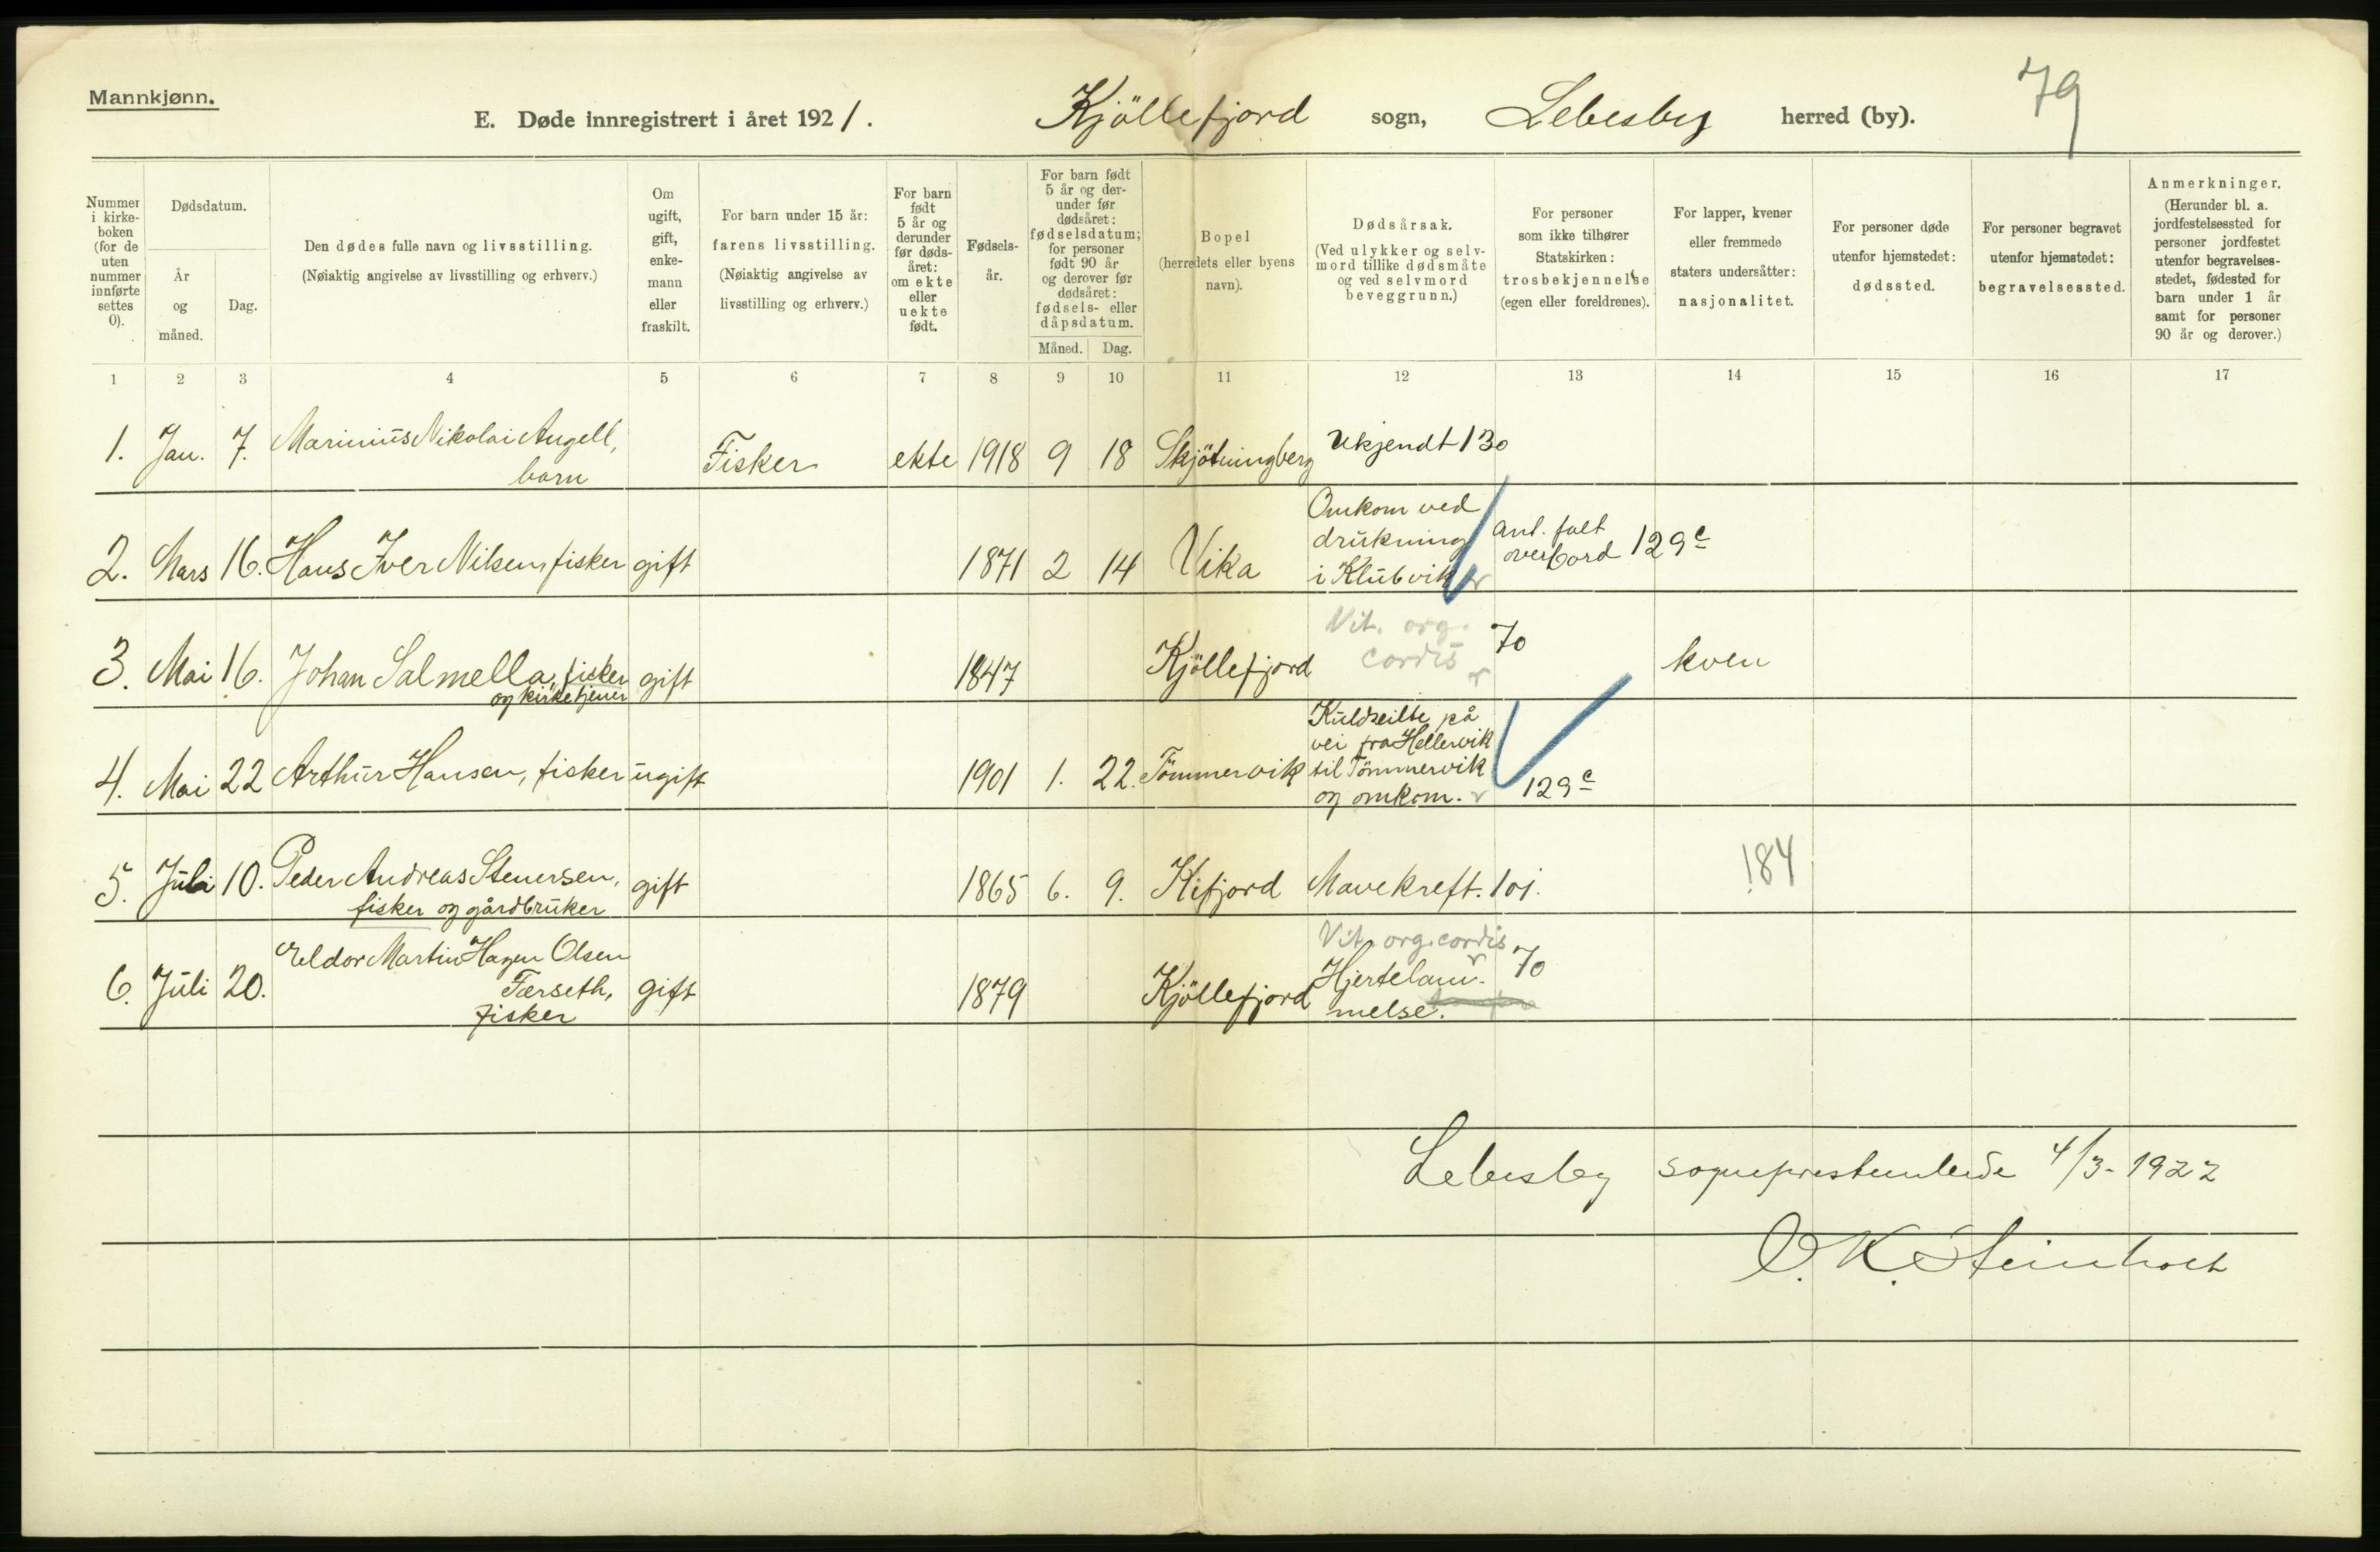 Mannkjønn.
E. Døde innregistrert i året 1921. Kjöllefjord sogn, Lebesby herred (by). 79
Nummer i kirkeboken (for de uten nummer innførte settes 0).
Dødsdatum.
År og måned.
Dag.
Den dødes fulle navn og livsstilling.
(Nøiaktig angivelse av livsstilling og erhverv.)
Om ugift, gift, enkemann eller fraskilt.
For barn under 15 år: farens livsstilling.
(Nøiaktig angivelse av livsstilling og erhverv.)
For barn født 5 år og derunder før dødsåret: om ekte eller uekte født.
Fødselsår.
For barn født 5 år og derunder før dødsåret: fødselsdatum; for personer født 90 år og derover før dødsåret: fødsels- eller dåpsdatum.
Måned. Dag.
Bopel
(herredets eller byens navn).
Dødsårsak.
(Ved ulykker og selvmord tillike dødsmåte og ved selvmord beveggrunn.)
For personer som ikke tilhører Statskirken: trosbekjennelse (egen eller foreldrenes).
For lapper, kvener eller fremmede staters undersåtter: nasjonalitet.
For personer døde utenfor hjemstedet: dødssted.
For personer begravet utenfor hjemstedet: begravelsessted.
Anmerkninger.
(Herunder bl. a. jordfestelsessted for personer jordfestet utenfor begravelsesstedet, fødested for barn under 1 år samt for personer 90 år og derover.)
1 2 3 4 5 6 7 8 9 10 11 12 13 14 15 16 17
1. Jan. 7. Marinius Nikolai Angell, barn Fisker ekte 1918 9 18 Skjötningberg Ukjendt 130
2. Mars 16. Hans Iver Nilsen, fisker gift 1871 2 14 Vika Omkom ved drukning i Klubvik Ant. falt overbord 129c
3. Mai 16. Johan Salmella, fisker og kirketjener gift 1847 Kjöllefjord Vit. org. cordis 70 kven
4. Mai 22 Arthur Hansen, fisker ugift 1901 1. 22. Tömmervik Kuldseilte på vei fra Hellervik til Tömmervik og omkom. 129c
5. Juli 10. Peder Andreas Stenersen, fisker og gårdbruker gift 1865 6. 9. Kifjord Mavekreft. 101. 184
6. Juli 20. Eldor Martin Hagen Olsen Færseth, fisker gift 1879 Kjöllefjord Vit. org. cordis Hjertelammelse. 70
Lebesby sogneprestembede 4/3-1922
O. K. Steinholt